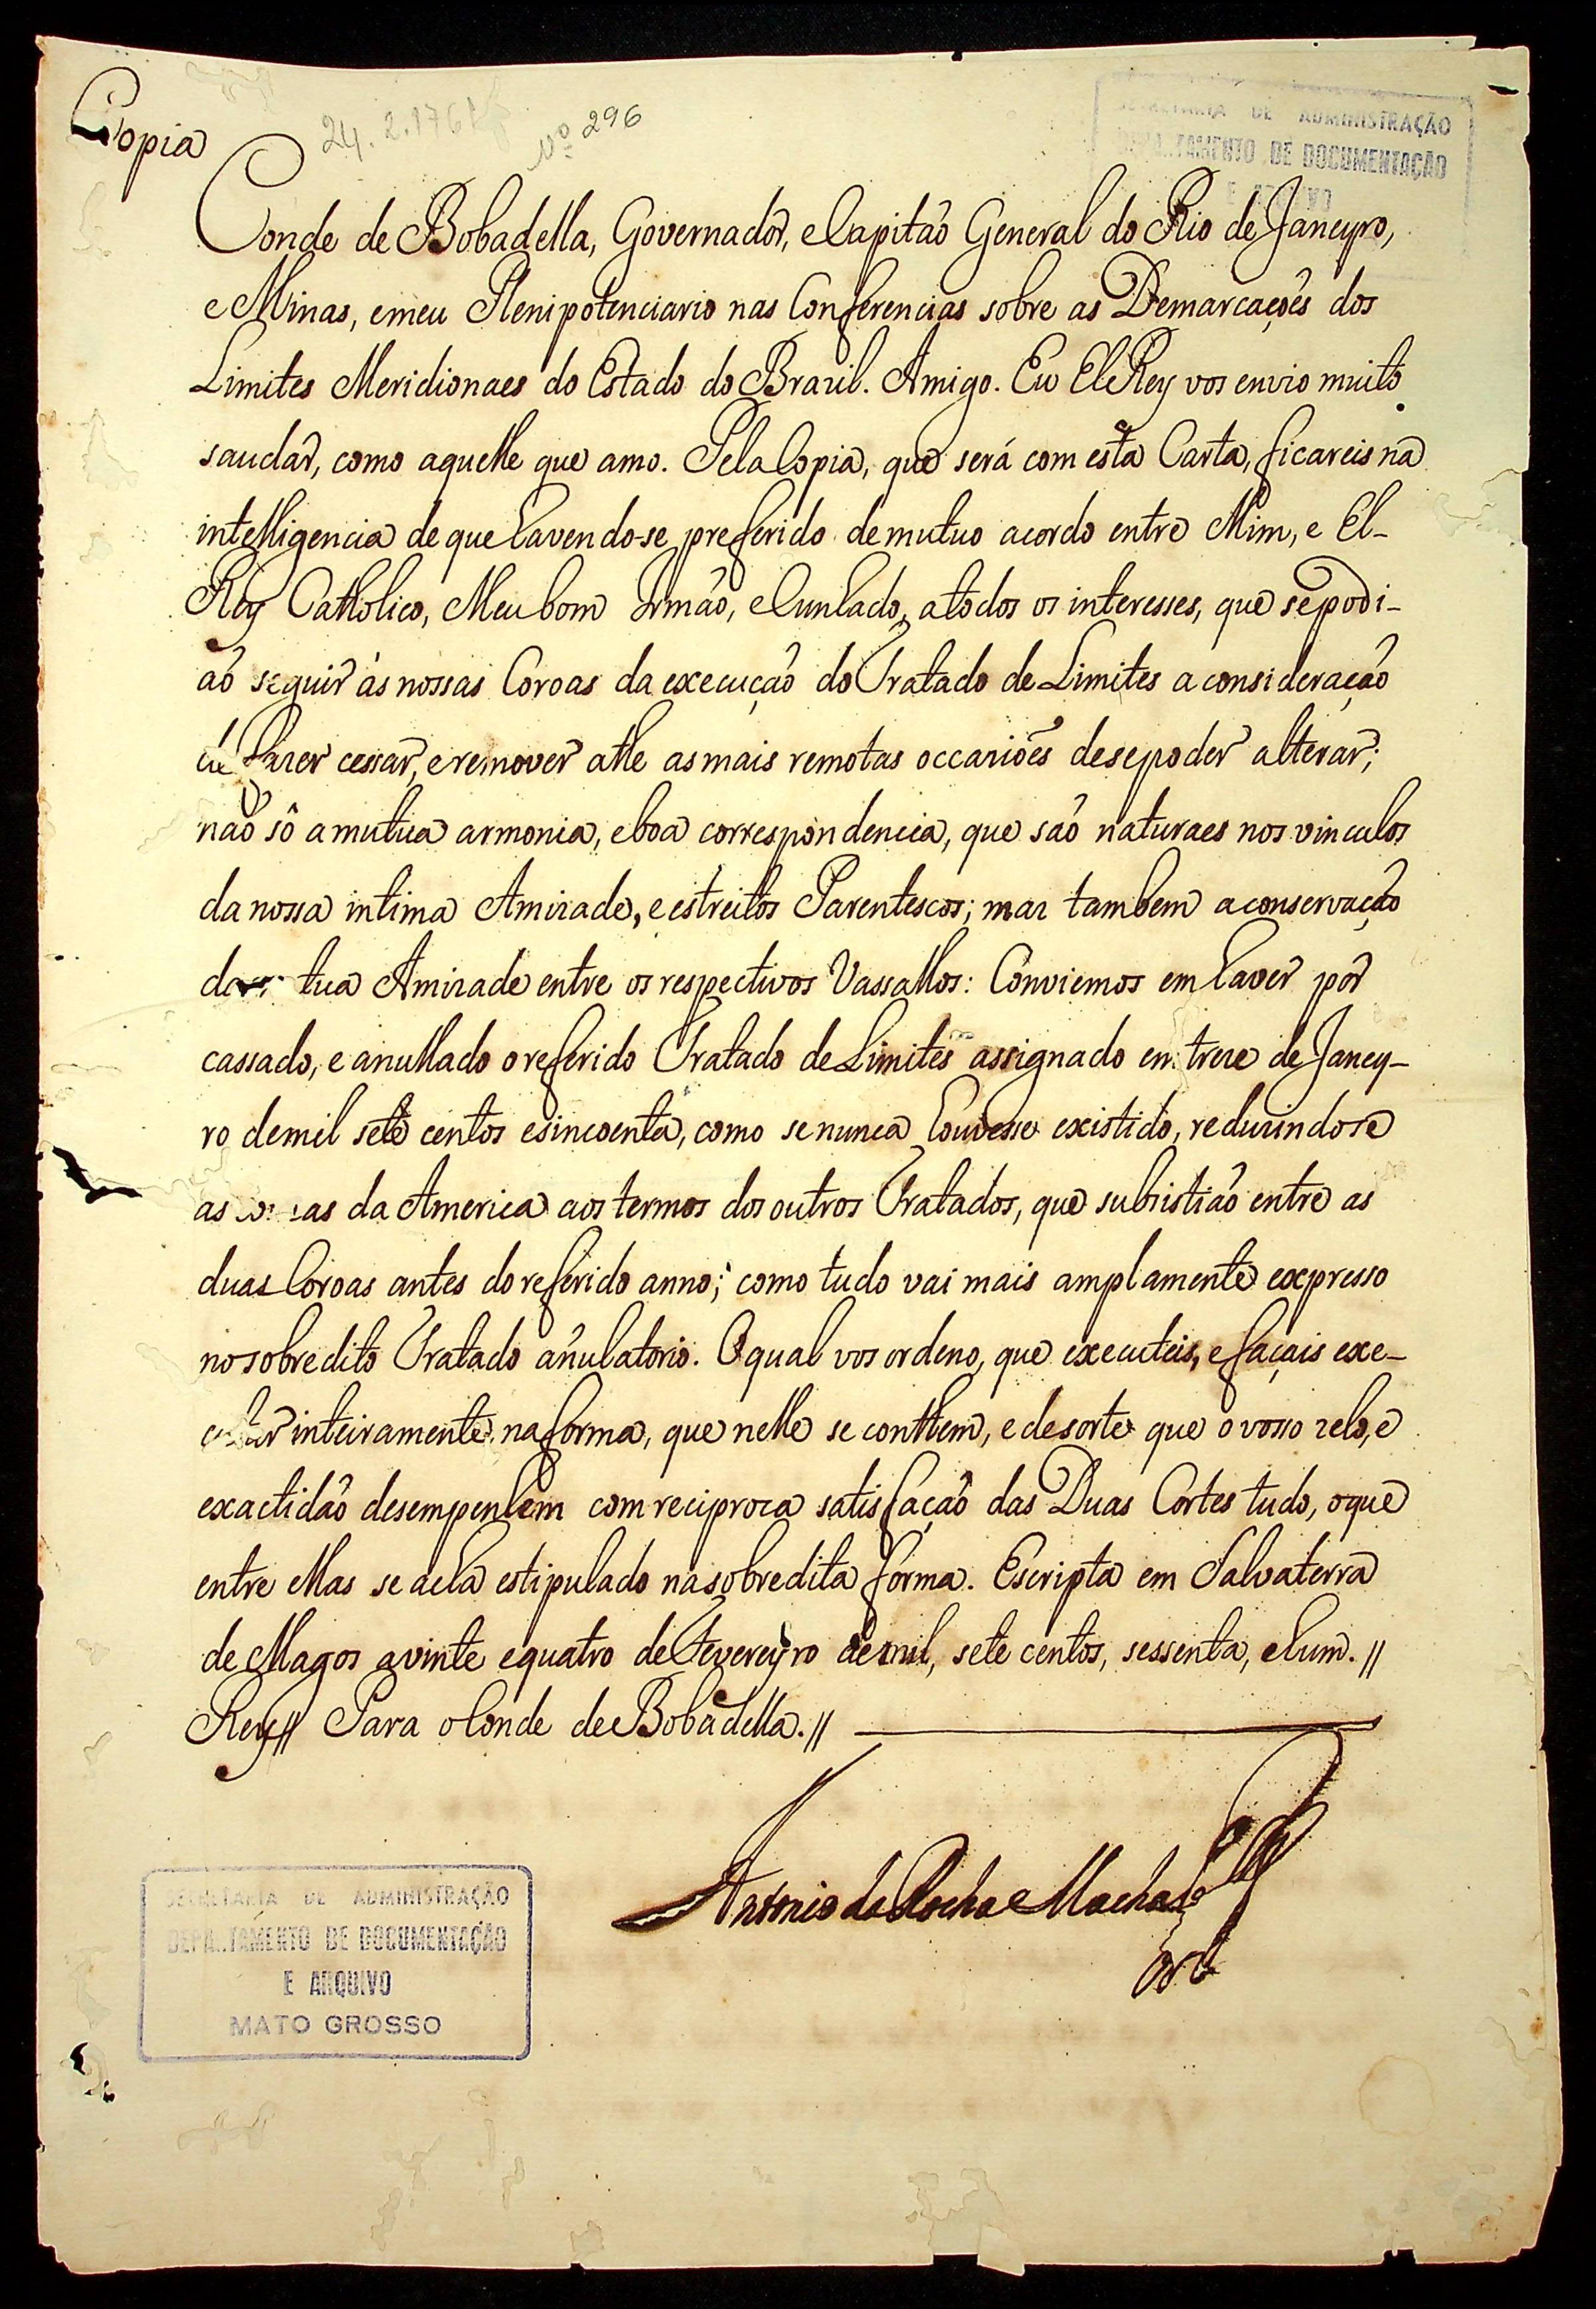 Copia
24.2.1761
Nº 296
SECRETARIA DE ADMINISTRAÇÃO
DEPARTAMENTO DE DOCUMENTAÇÃO
E ARQUIVO
Conde de Bobadella, Governador, e Capitaõ General do Rio de Janeyro,
e Minas, e meu Plenipotenciario nas Conferencias sobre as Demarcaçoẽs dos
Limites Meridionaes do Estado do Brazil. Amigo. Eu El Rey vos envio muito
saudar, como aquelle que amo. Pela Copia, que será com esta Carta, ficareis na
intelligencia de que havendo-se preferido de mutuo acordo entre Mim, e El-
Rey Catholico, Meu bom Irmaõ, e Cunhado, a todos os interesses, que se podi-
aõ seguir ás nossas Coroas da execuçaõ do Tratado de Limites a consideraçaõ
de fazer cessar, e remover athe as mais remotas occazioẽs de se poder alterar;
naõ só a mutua armonia, e boa correspondencia, que saõ naturaes nos vinculos
da nossa intima Amizade, e estreitos Parentescos; maz tambem a conservaçaõ
da tua Amizade entre os respectivos Vassallos: Conviemos em haver por
cassado, e anullado o referido Tratado de Limites assignado em treze de Janey-
ro de mil sete centos e sincoenta, como se nunca houvesse existido, reduzindose
as da America aos termos dos outros Tratados, que subsistiaõ entre as
duas Coroas antes do referido anno; como tudo vai mais amplamente expresso
no sobredito Tratado añulatorio. O qual vos ordeno, que executeis, e façais exe-
cutar inteiramente na forma, que nelle se conthem, e de sorte que o vosso zelo, e
exactidaõ desempenhem com reciproca satisfaçaõ das Duas Cortes tudo, o que
entre ellas se acha estipulado na sobredita fórma. Escripta em Salvaterra
de Magos a vinte e quatro de Fevereyro de mil, sete centos, sessenta, e hum. //
Rey // Para o Conde de Bobadella. //
Antonio da Rocha Machado
SECRETARIA DE ADMINISTRAÇÃO
DEPARTAMENTO DE DOCUMENTAÇÃO
E ARQUIVO
MATO GROSSO